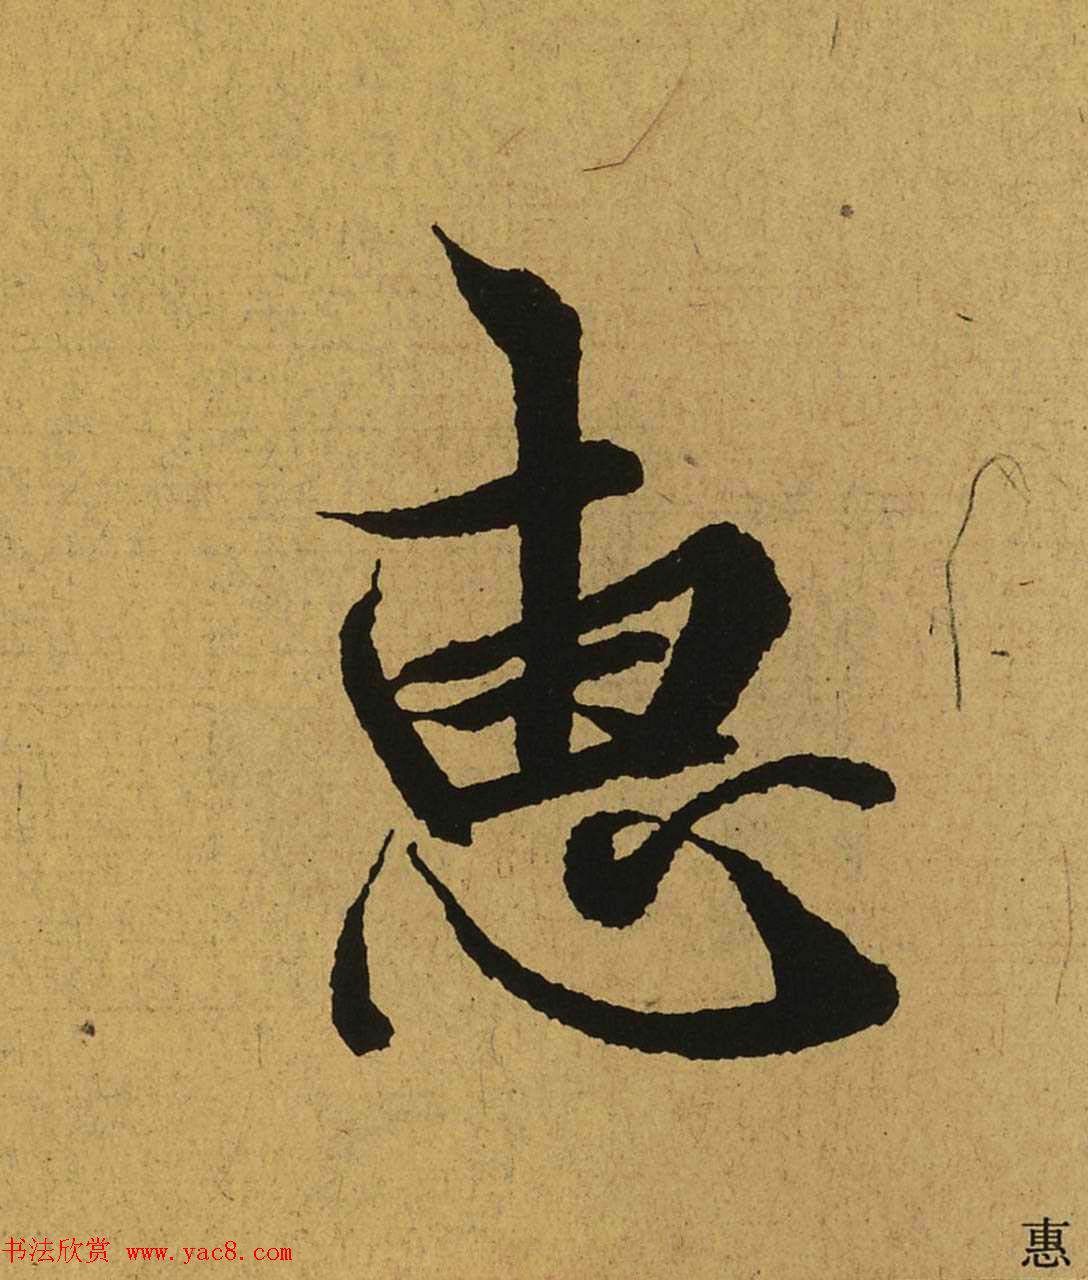 惠
书法欣赏 www.yac8.com
惠